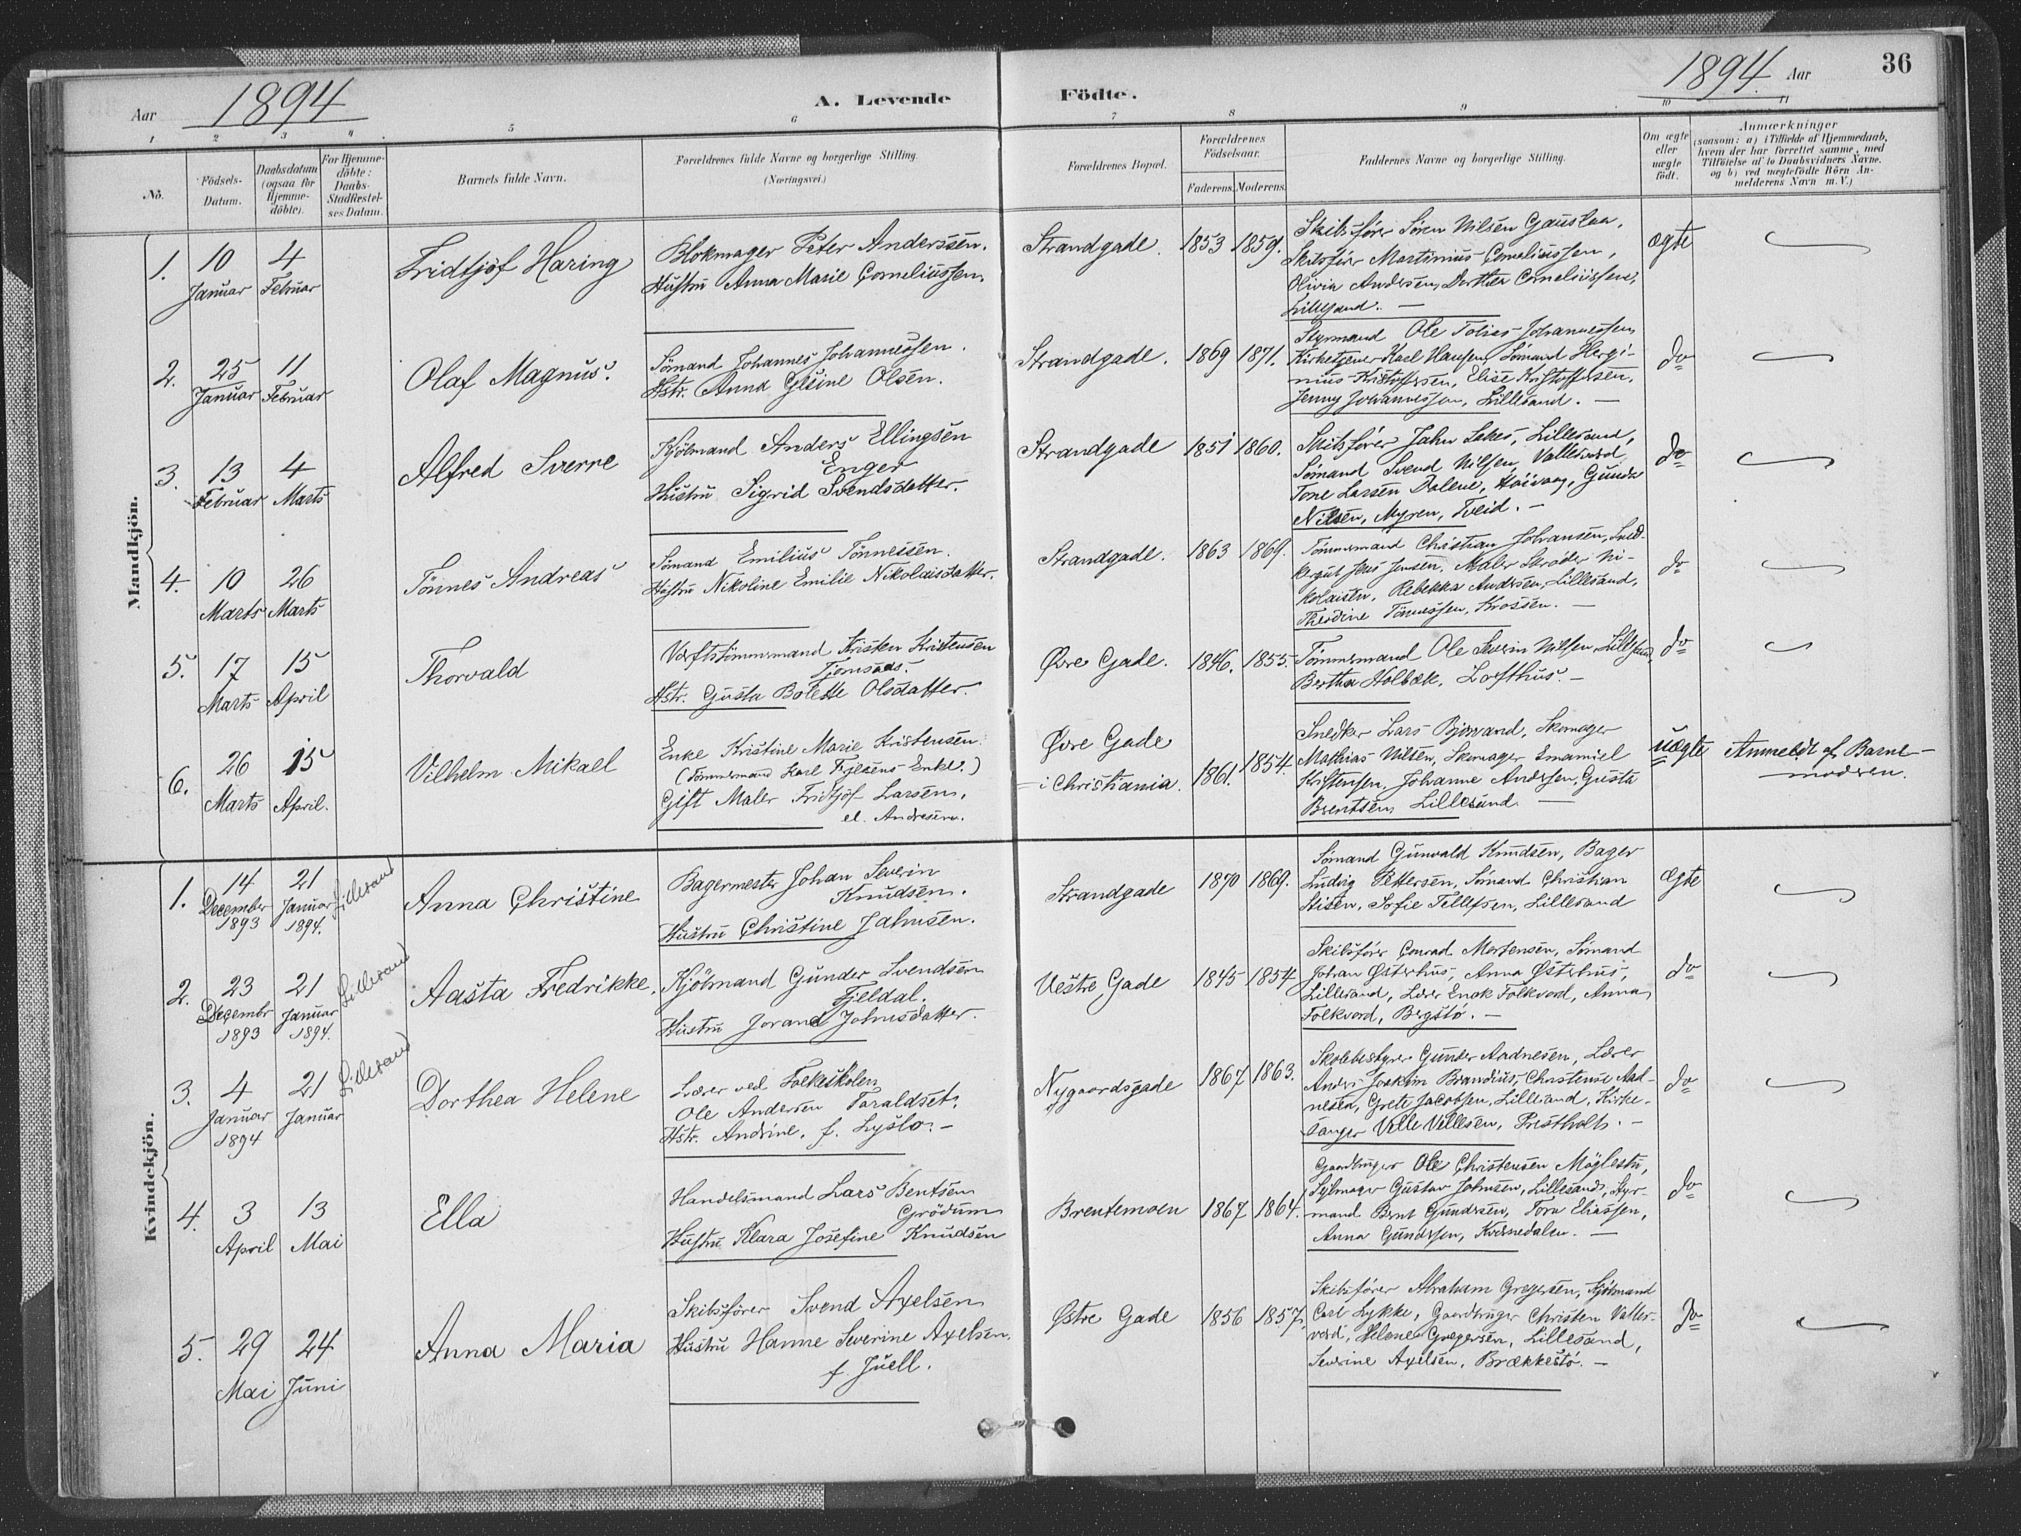 Aar 1894
A. Levende Födte.
1894. Aar
36
1 2 3 4 5 6 7 8 9 10 11
No.
Födsels-Datum.
Daabsdatum (ogsaa for Hjemme-döbte).
For Hjemme-döbte: Daabs-Stadfæstel-ses Datum.
Barnets fulde Navn.
Forældrenes fulde Navne og borgerlige Stilling. (Næringsvei.)
Forældrenes Bopæl.
Forældrenes Födselsaar.
Faderens. Moderens.
Faddernes Navne og borgerlige Stilling.
Om ægte eller uægte födt.
Anmærkninger
(saasom: a) i Tilfælde af Hjemmedaab, hvem der har forrettet samme, med Tilföielse af to Daabsvidners Navne. og b) ved uægtefödte Börn An-melderens Navn m. V.)
Mandkjön.
1.
10 Januar
4 Februar
Fridtjof Haring
Blokmager Peter Anderssen.
Hustru Anna Marie Corneliussen.
Strandgade.
1853 1859.
Skibsfører Søren Nilsen Gauslaa,
Skibsfører Martinius Corneliussen,
Olivia Andersen, Dorthea Corneliussen,
Lillesand. —
ægte
2.
25 Januar
11 Februar
Olaf Magnus.
Sömand Johannes Johannessen.
Hstr. Anna Gesine Olsen.
Strandgade.
1869 1871.
Styrmand Ole Tobias Johannessen,
Kirketjener Karl Hansen, Sømand Hergi-
nius Kristoffersen, Elise Kristoffersen,
Jenny Johannessen, Lillesand. —
do
3.
13 Februar
4 Marts
Alfred Sverre
Kjölmand Anders Ellingsen
Enger
Hustru Sigrid Svendsdatter.
Strandgade
1851 1860.
Skibsfører Jahn Lekes, Lillesand,
Sømand Svend Nilsen, Vallesverd,
Tone Larsen Dalene, Høivaag, Gunde
Nilsen, Myren, Tveid. —
do
4.
10 Marts
26 Marts
Tönnes Andreas
Sömand Emilius Tönnessen.
Hustru Nikoline Emilie Nikolaisdatter.
Strandgade.
1863 1869.
Tømmermand Christian Johansen, Sned-
kergut Jens Jensen, Maler Skrøder Ni-
kolaisen, Rebekka Andersen, Lillesand,
Theodine Tönnessen, Krossen. —
do
5.
17 Marts
15 April
Thorvald
Værftstömmermand Kristen Kristensen
Tjomsaas
Hstr. Gusta Bolette Olsdatter.
Øvre Gade.
1846. 1855.
Tømmermand Ole Severin Nilsen, Lillesand,
Bertha Holbæk, Lofthus. —
do
6.
26 Marts
15 April.
Vilhelm Mikael
Enke Kristine Marie Kristensen.
(Tömmermand Karl Enke.)
Gift Maler Fridtjof Larsen,
el. Andresen.
Øvre Gade
— i Christiania.
1861. 1854.
Snedker Lars Bjorvand, Skomager
Mathias Nilsen, Skomager Emanuel
Kristensen, Johanne Andersen, Gusta
Brentsen, Lillesand. —
uægte
Anmeldt af Barne-
moderen.
Kvindekjön.
1.
14 December 1893
21 Januar 1894.
Lillesand
Anna Christine
Bagermester Johan Severin
Knudsen.
Hustru Christine Jahnsen.
Strandgade
1870 1869.
Sømand Gunvald Knudsen, Bager
Ludvig Pettersen, Sømand Christian
Stisen, Sofie Tellefsen, Lillesand
ægte
2.
23 Decembr 1893
21 Januar 1894.
Lillesand
Aasta Fredrikke.
Kjölmand Gunder Svendsen
Fjeldal.
Hustru Jorand Johnsdatter.
Vestre Gade
1845 1854
Skibsfør Conrad Mortensen, Sømand
Johan Østerhus, Anna Østerhus,
Lillesand, Lærer Enok Folkvord, Anna
Folkvord, Bergstø. —
do
3.
4 Januar 1894
21 Januar
Lillesand
Dorthea Helene
Lærer ved Folkeskolen
Ole Andersen Taraldset.
Hstr. Andrine, f. Lyslo. —
Nygaardsgade
1867 1863.
Skolebestyrer Gunder Aadnesen, Lærer
Anders Joakim Brandius, Christense Aad-
nesen, Grete Jacobsen, Lillesand, Kirke-
sanger Velle Villesen, Prestholt. —
do
4.
3 April
13 Mai
Ella
Handelsmand Lars Bentsen
Grödum
Hustru Klara Josefine Knudsen
Brentemoen
1867 1864.
Gaardbruger Ole Christensen Möglestu,
Seilmager Gustav Johnsen, Lillesand, Styr-
mand Bernt Gundersen, Tora Eliassen,
Anna Gundersen, Kvernedalen. —
do
5.
29 Mai
24 Juni
Anna Maria
Skibsfører Svend Axelsen
Hustru Hanne Severine Axelsen,
f. Juell.
Østre Gade
1856 1857.
Skibsfører Abraham Gregersen, Kjölmand
Carl Lykke, Gaardbruger Christen Valles-
verd, Helene Gregersen, Lillesand,
Severine Axelsen, Brækkestø. —
do